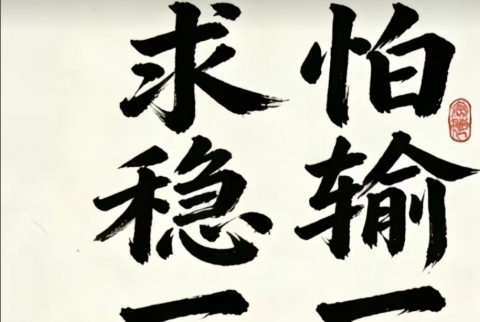 怕输一
求稳一